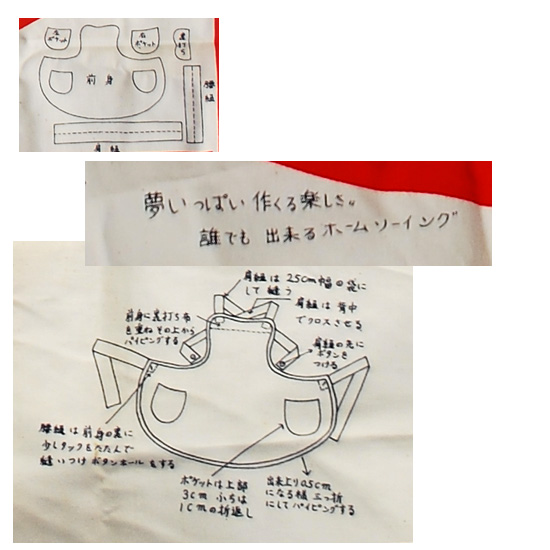 左
ポケット
右
ポケット
裏
打ち
前身
腰
紐
肩紐
夢いっぱい作くる楽しさ。
誰でも出来るホームソーイング
肩紐は2.5cm幅の袋に
して縫う
肩紐は背中
でクロスさせる
前身に裏打ち布
を重ねその上から
パイピングする
肩紐の先に
ボタンを
つける
腰紐は前身の裏に
少しタックをたたんで
縫いつけボタンホールをする
ポケットは上部
3cmふちは
1cmの折返し
出来上り0.5cm
になる様三つ折
にしてパイピングする